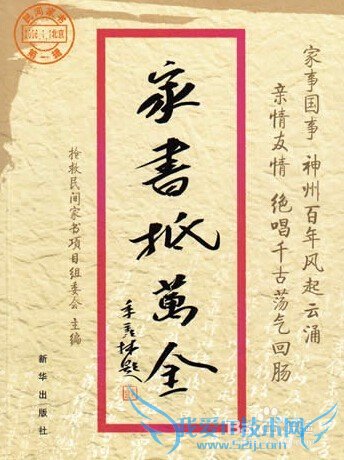 家事国事 神州百年风起云涌
亲情友情 绝唱千古荡气回肠
家書抵萬金
季羡林題
抢救民间家书项目组委会 主编
新华出版社
民间家书
北京
我爱IT技术网
www.52ij.com